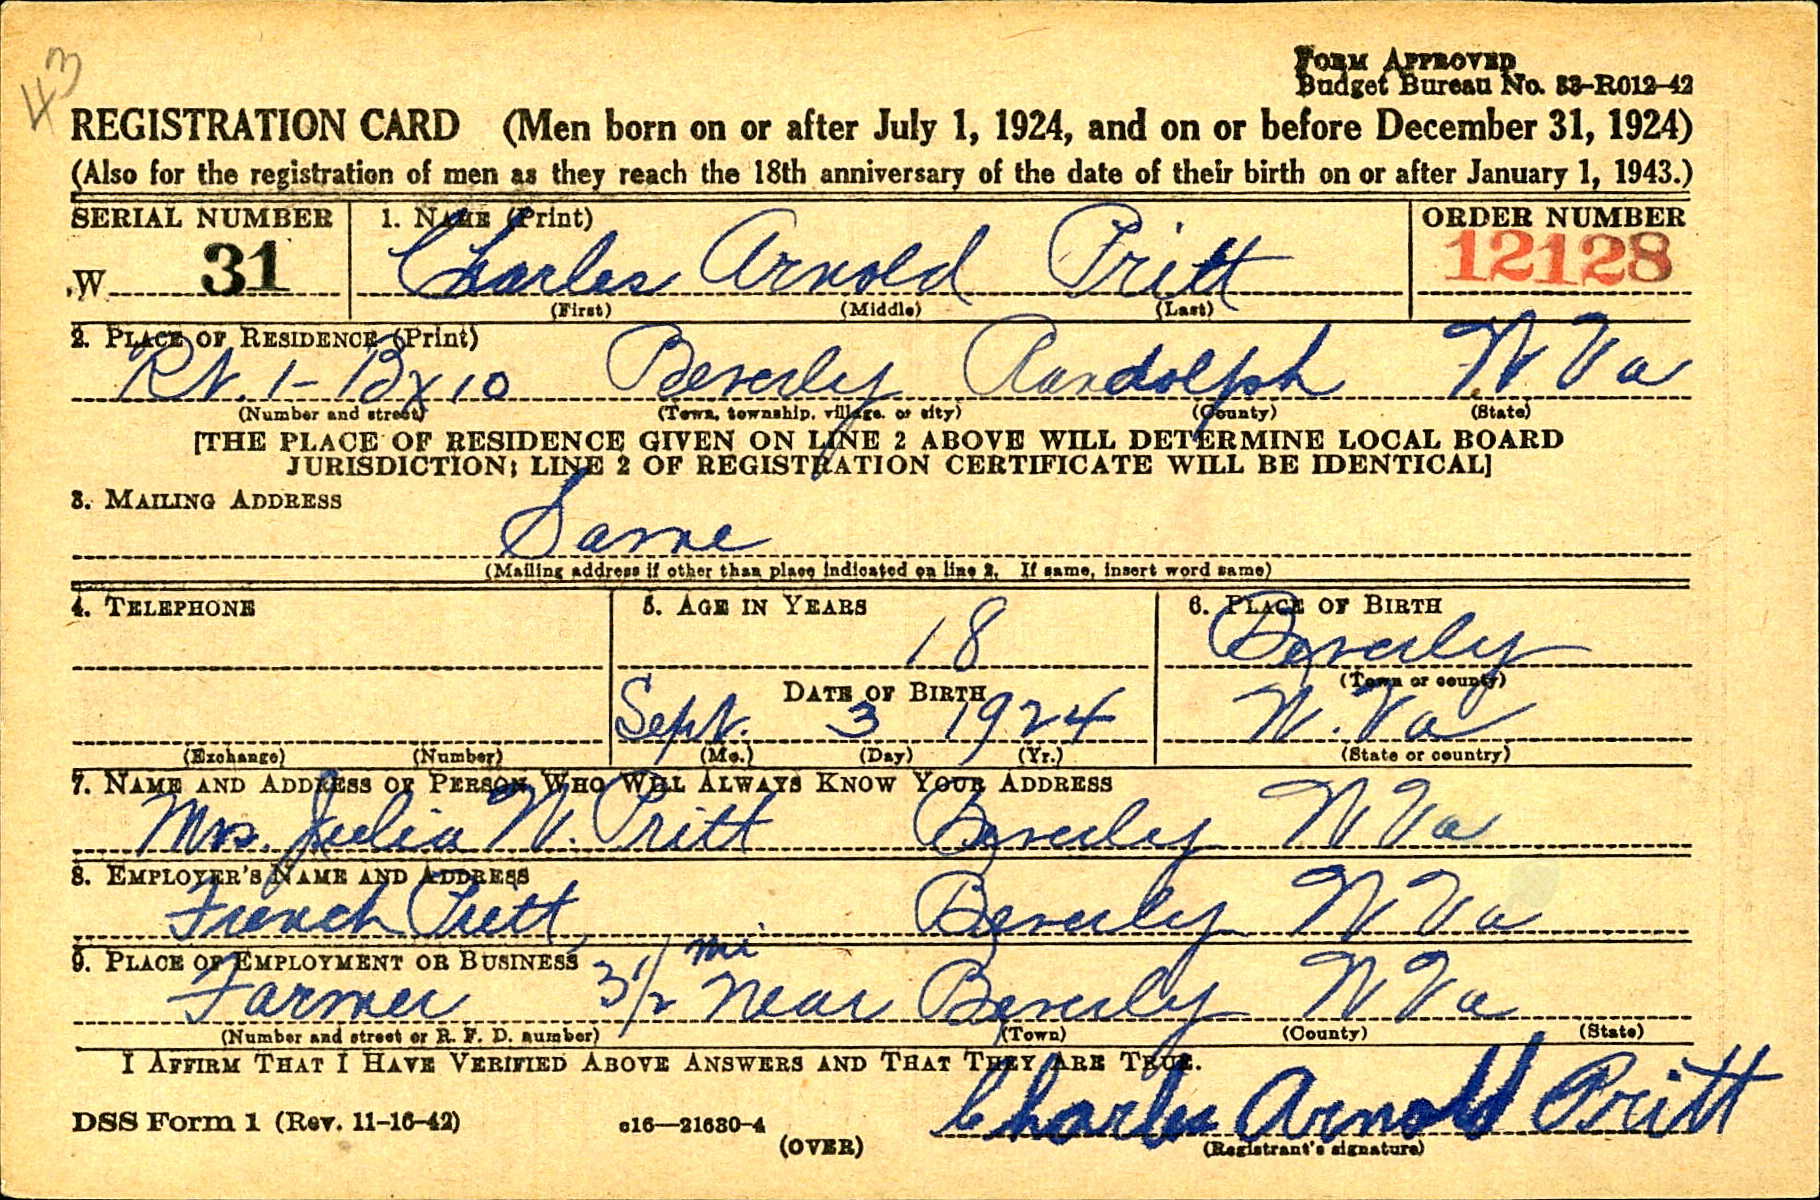 43
FORM APPROVED
Budget Bureau No. 33-R012-42
REGISTRATION CARD (Men born on or after July 1, 1924, and on or before December 31, 1924)
(Also for the registration of men as they reach the 18th anniversary of the date of their birth on or after January 1, 1943.)
SERIAL NUMBER 1. NAME (Print) ORDER NUMBER
W 31 Charles Arnold Pritt 12128
(First) (Middle) (Last)
2. PLACE OF RESIDENCE (Print)
Rt. 1- Bx 10 Beverly Randolph W Va
(Number and street) (Town, township, village, or city) (County) (State)
[THE PLACE OF RESIDENCE GIVEN ON LINE 2 ABOVE WILL DETERMINE LOCAL BOARD
JURISDICTION; LINE 2 OF REGISTRATION CERTIFICATE WILL BE IDENTICAL]
3. MAILING ADDRESS
Same
(Mailing address if other than place indicated on line 2. If same, insert word same)
4. TELEPHONE 5. AGE IN YEARS 6. PLACE OF BIRTH
18 Beverly
DATE OF BIRTH (Town or county)
Sept. 3 1924 W. Va
(Exchange) (Number) (Mo.) (Day) (Yr.) (State or country)
7. NAME AND ADDRESS OF PERSON WHO WILL ALWAYS KNOW YOUR ADDRESS
Mrs. Julia W. Pritt Beverly W Va
8. EMPLOYER'S NAME AND ADDRESS
French Pritt, Beverly W Va
9. PLACE OF EMPLOYMENT OR BUSINESS
Farmer 3 1/2 mi near Beverly W Va
(Number and street or R. F. D. number) (Town) (County) (State)
I AFFIRM THAT I HAVE VERIFIED ABOVE ANSWERS AND THAT THEY ARE TRUE.
DSS Form 1 (Rev. 11-16-42) c16—21630-4 Charles Arnold Pritt
(OVER) (Registrant's signature)